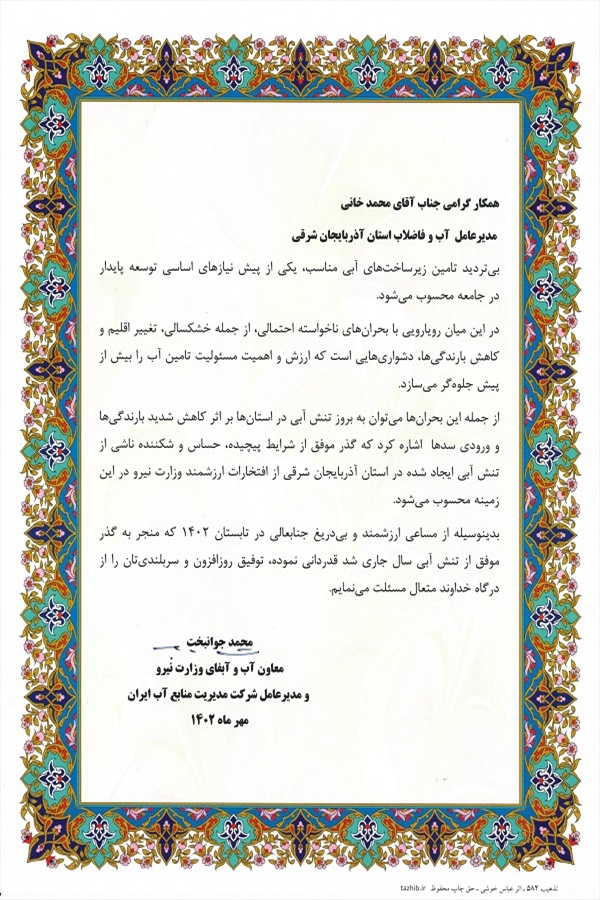 همکار گرامی جناب آقای محمد خانی
مدیرعامل آب و فاضلاب استان آذربایجان شرقی
بی‌تردید تامین زیرساخت‌های آبی مناسب، یکی از پیش نیازهای اساسی توسعه پایدار
در جامعه محسوب می‌شود.
در این میان رویارویی با بحران‌های ناخواسته احتمالی، از جمله خشکسالی، تغییر اقلیم و
کاهش بارندگی‌ها، دشواری‌هایی است که ارزش و اهمیت مسئولیت تامین آب را بیش از
پیش جلوه‌گر می‌سازد.
از جمله این بحران‌ها می‌توان به بروز تنش آبی در استان‌ها بر اثر کاهش شدید بارندگی‌ها
و ورودی سدها اشاره کرد که گذر موفق از شرایط پیچیده، حساس و شکننده ناشی از
تنش آبی ایجاد شده در استان آذربایجان شرقی از افتخارات ارزشمند وزارت نیرو در این
زمینه محسوب می‌شود.
بدینوسیله از مساعی ارزشمند و بی‌دریغ جنابعالی در تابستان ۱۴۰۲ که منجر به گذر
موفق از تنش آبی سال جاری شد قدردانی نموده، توفیق روزافزون و سربلندی‌تان را از
درگاه خداوند متعال مسئلت می‌نمایم.
محمد جوانبخت
معاون آب و آبفای وزارت نیرو
و مدیرعامل شرکت مدیریت منابع آب ایران
مهر ماه ۱۴۰۲
تذهیب ۵۸۲ ـ اثر عباس خوشی ـ حق چاپ محفوظ tazhib.ir